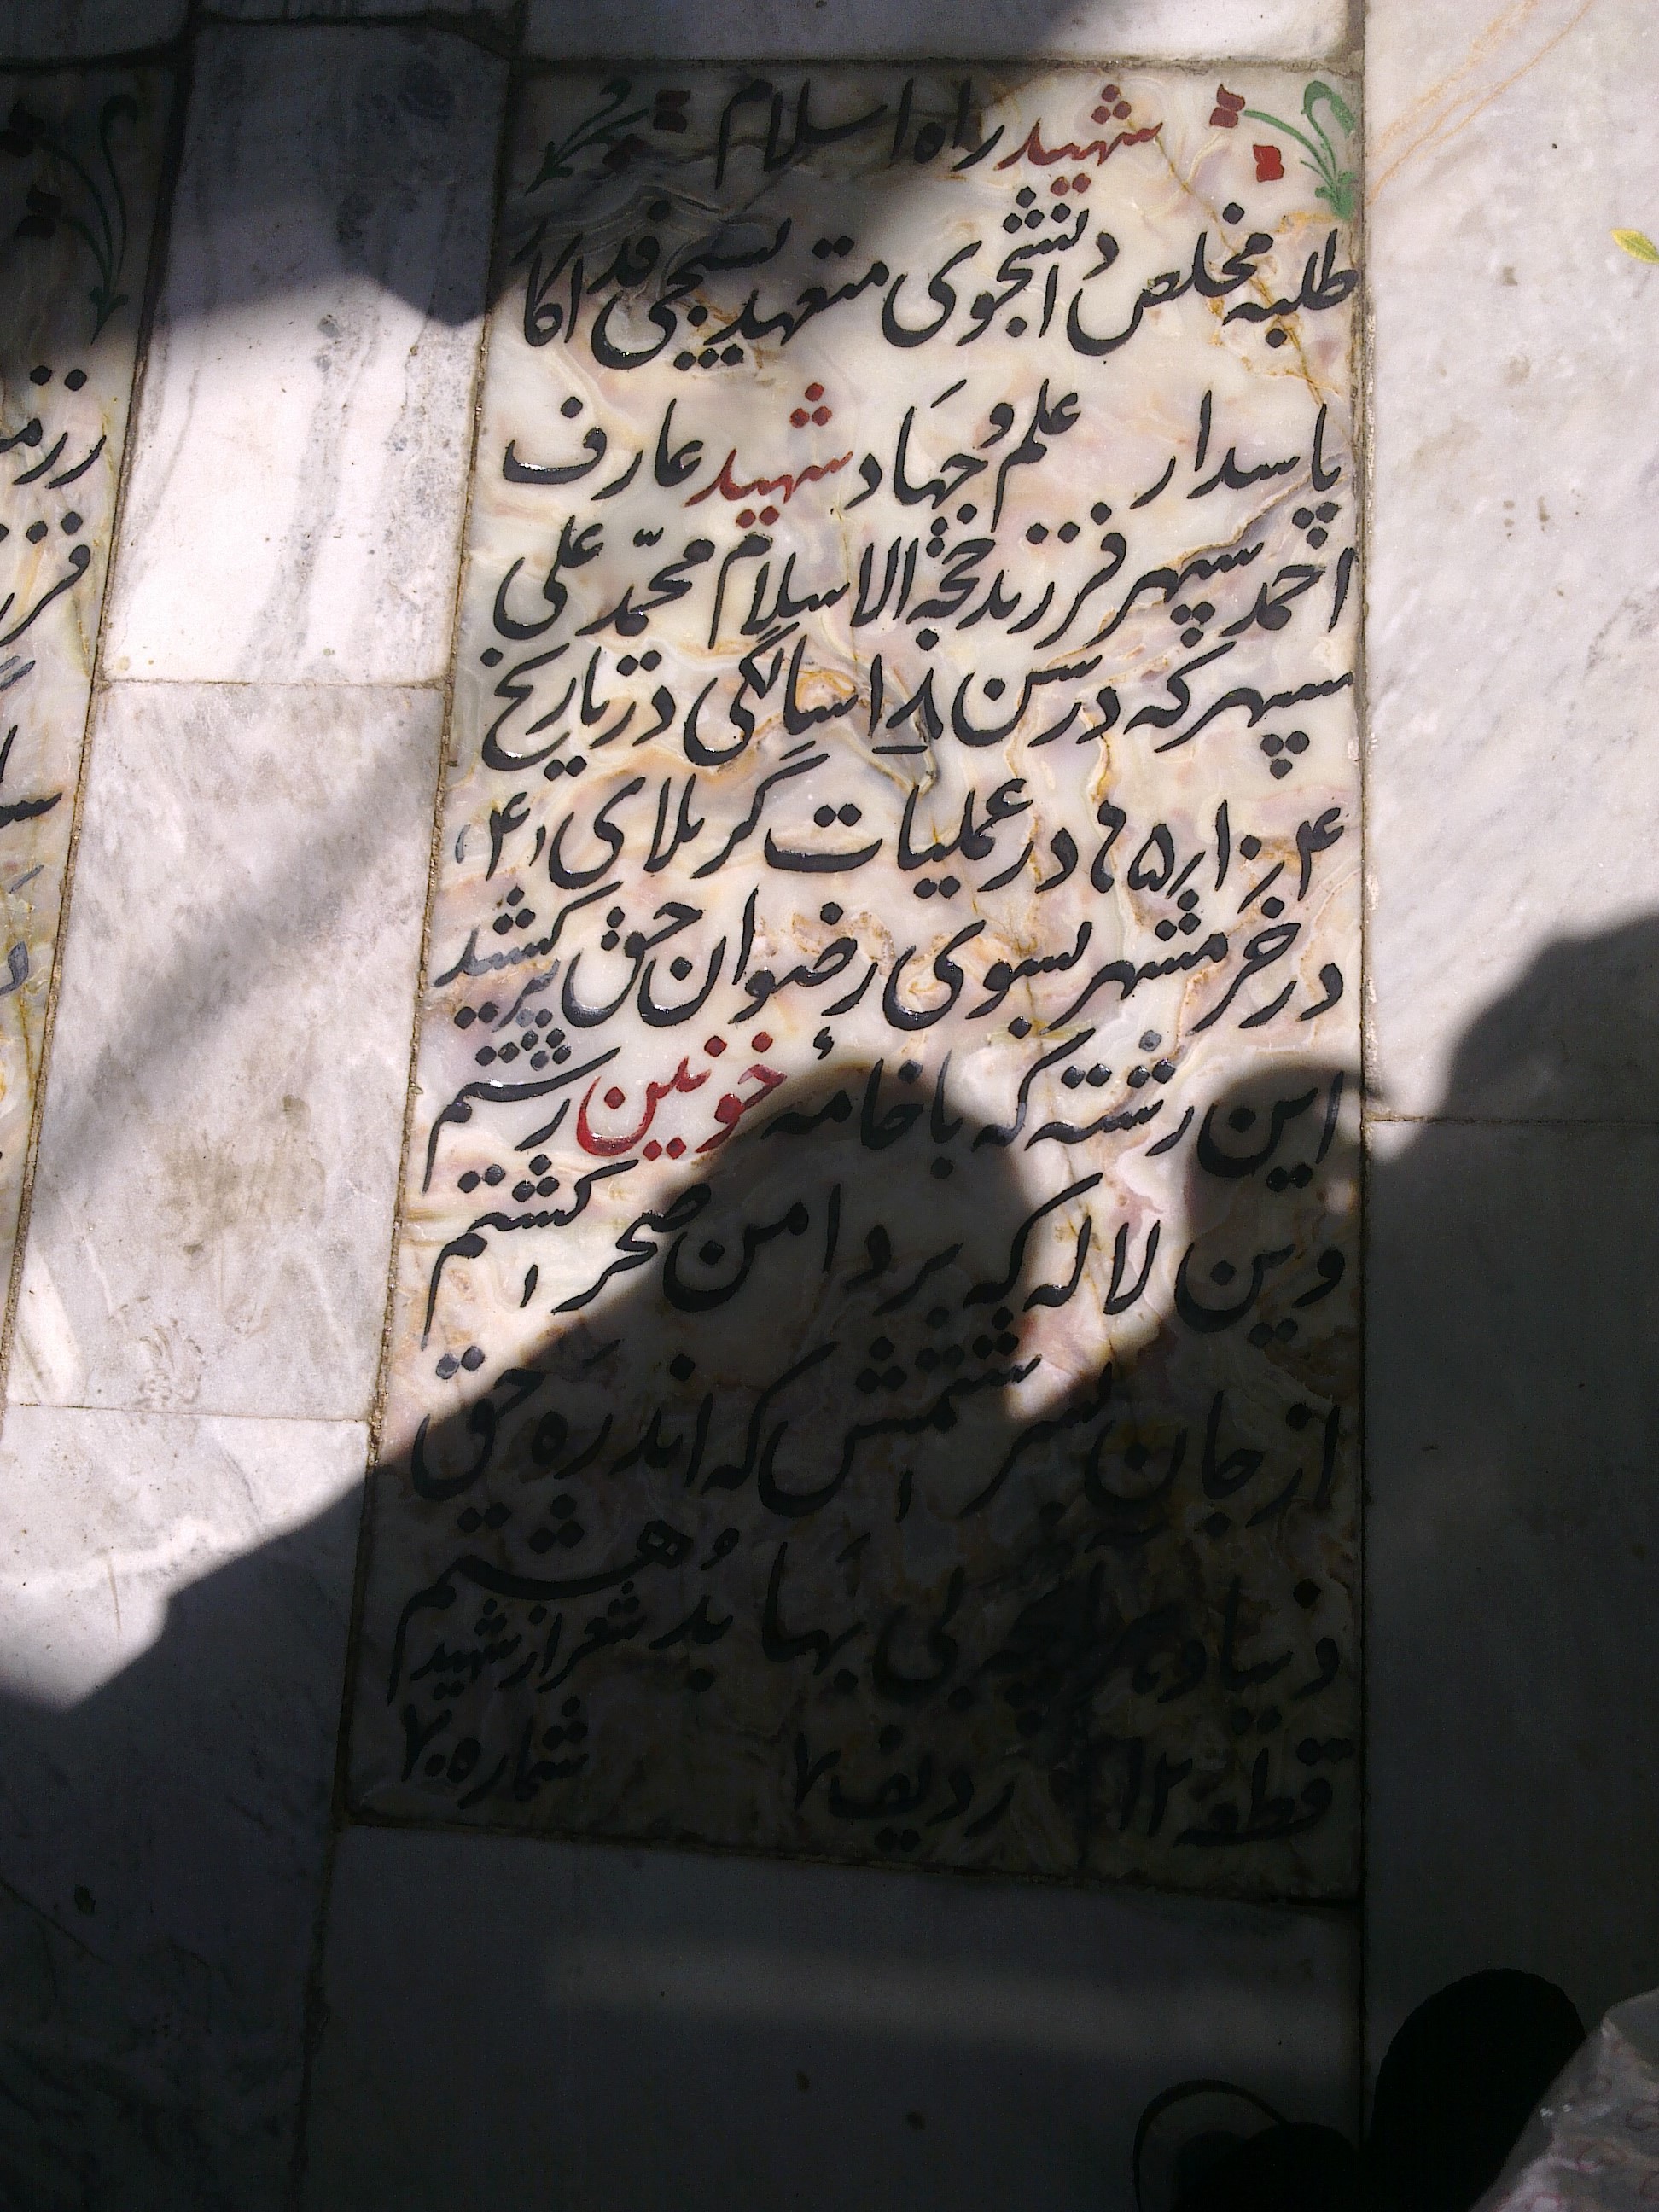 شهید راه اسلام
طلبه مخلص دانشجوی متعهد بسیجی فداکار
پاسدار علم و جهاد شهید عارف
احمد سپهر فرزند حجة الاسلام محمّد علی
سپهر که در سن ۱۸ سالگی در تاریخ
۴ر۱۰ر۶۵ در عملیات کربلای (۴)
در خرمشهر بسوی رضوان حق پر کشید
این رشته که با خامهٔ خونین رشتم
وین لاله که بر دامن صحرا کشتم
از جان بسرشتمش که اندر ره حق
دنیا و هر آنچه بی بها بُد هشتم
شعر از شهید
قطعه ۱۲ ردیف ۷ شماره ۷۰۰
رزمـ
فرز